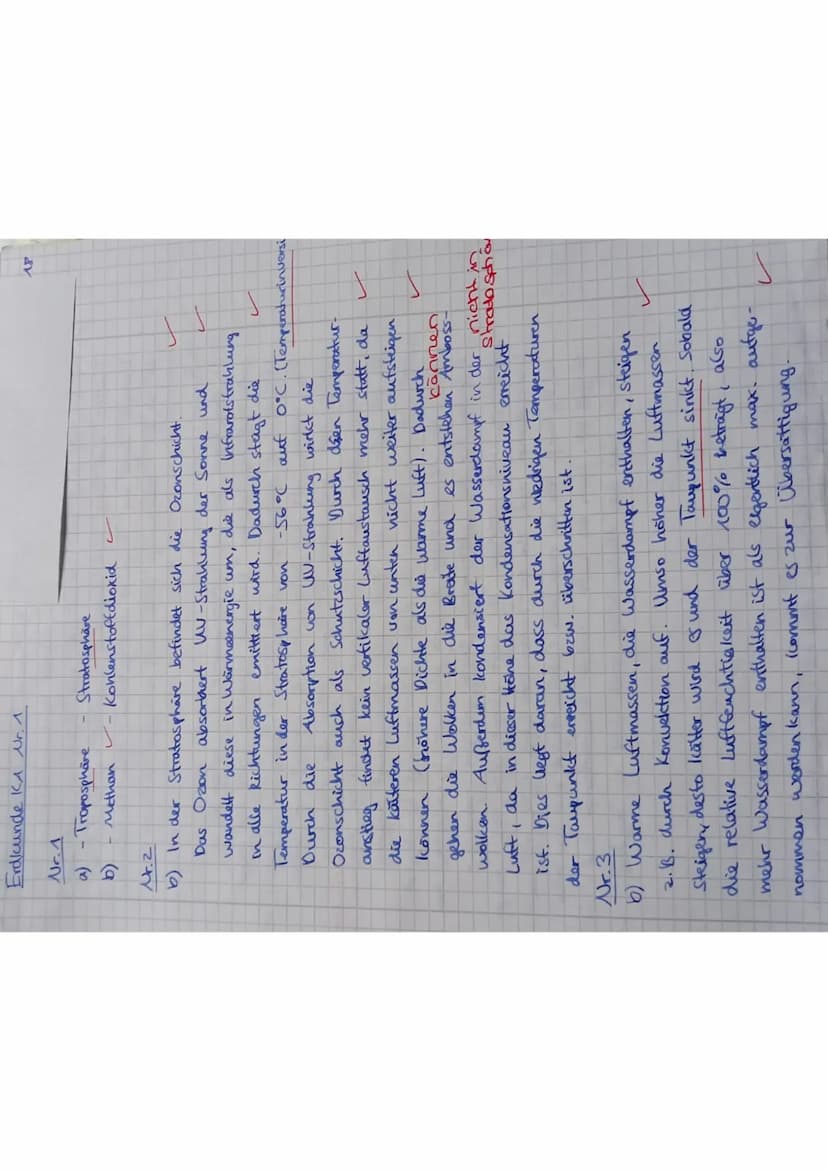 18
Erdkunde K1 Nr. 1
Nr. 1
a) - Troposphäre - Stratosphäre
b) - Methan ✓ - Kohlenstoffdioxid ✓
Nr. 2
b) In der Stratosphäre befindet sich die Ozonschicht. ✓
Das Ozon absorbiert UV-Strahlung der Sonne und ✓
wandelt diese in Wärmeenergie um, die als Infrarotstrahlung
in alle Richtungen emittiert wird. Dadurch steigt die ✓
Temperatur in der Stratosphäre von -56°C auf 0°C. (Temperaturinversi
Durch die Absorption von UV-Strahlung wirkt die
Ozonschicht auch als Schutzschicht. Durch den Temperatur-
anstieg findet kein vertikaler Luftaustausch mehr statt, da ✓
die kälteren Luftmassen von unten nicht weiter aufsteigen
können (höhere Dichte als die warme Luft). Dadurch ✓
können
gehen die Wolken in die Breite und es entstehen Amboss-
wolken. Außerdem kondensiert der Wasserdampf in der nicht in
Stratosphä
Luft, da in dieser Höhe das Kondensationsniveau erreicht
ist. Dies liegt daran, dass durch die niedrigen Temperaturen
der Taupunkt erreicht bzw. überschritten ist.
Nr. 3
b) Warme Luftmassen, die Wasserdampf enthalten, steigen
z.B. durch Konvektion auf. Umso höher die Luftmassen ✓
steigen, desto kälter wird es und der Taupunkt sinkt. Sobald
die relative Luftfeuchtigkeit über 100% beträgt, also
mehr Wasserdampf enthalten ist als eigentlich max. aufge- ✓
nommen werden kann, kommt es zur Übersättigung.